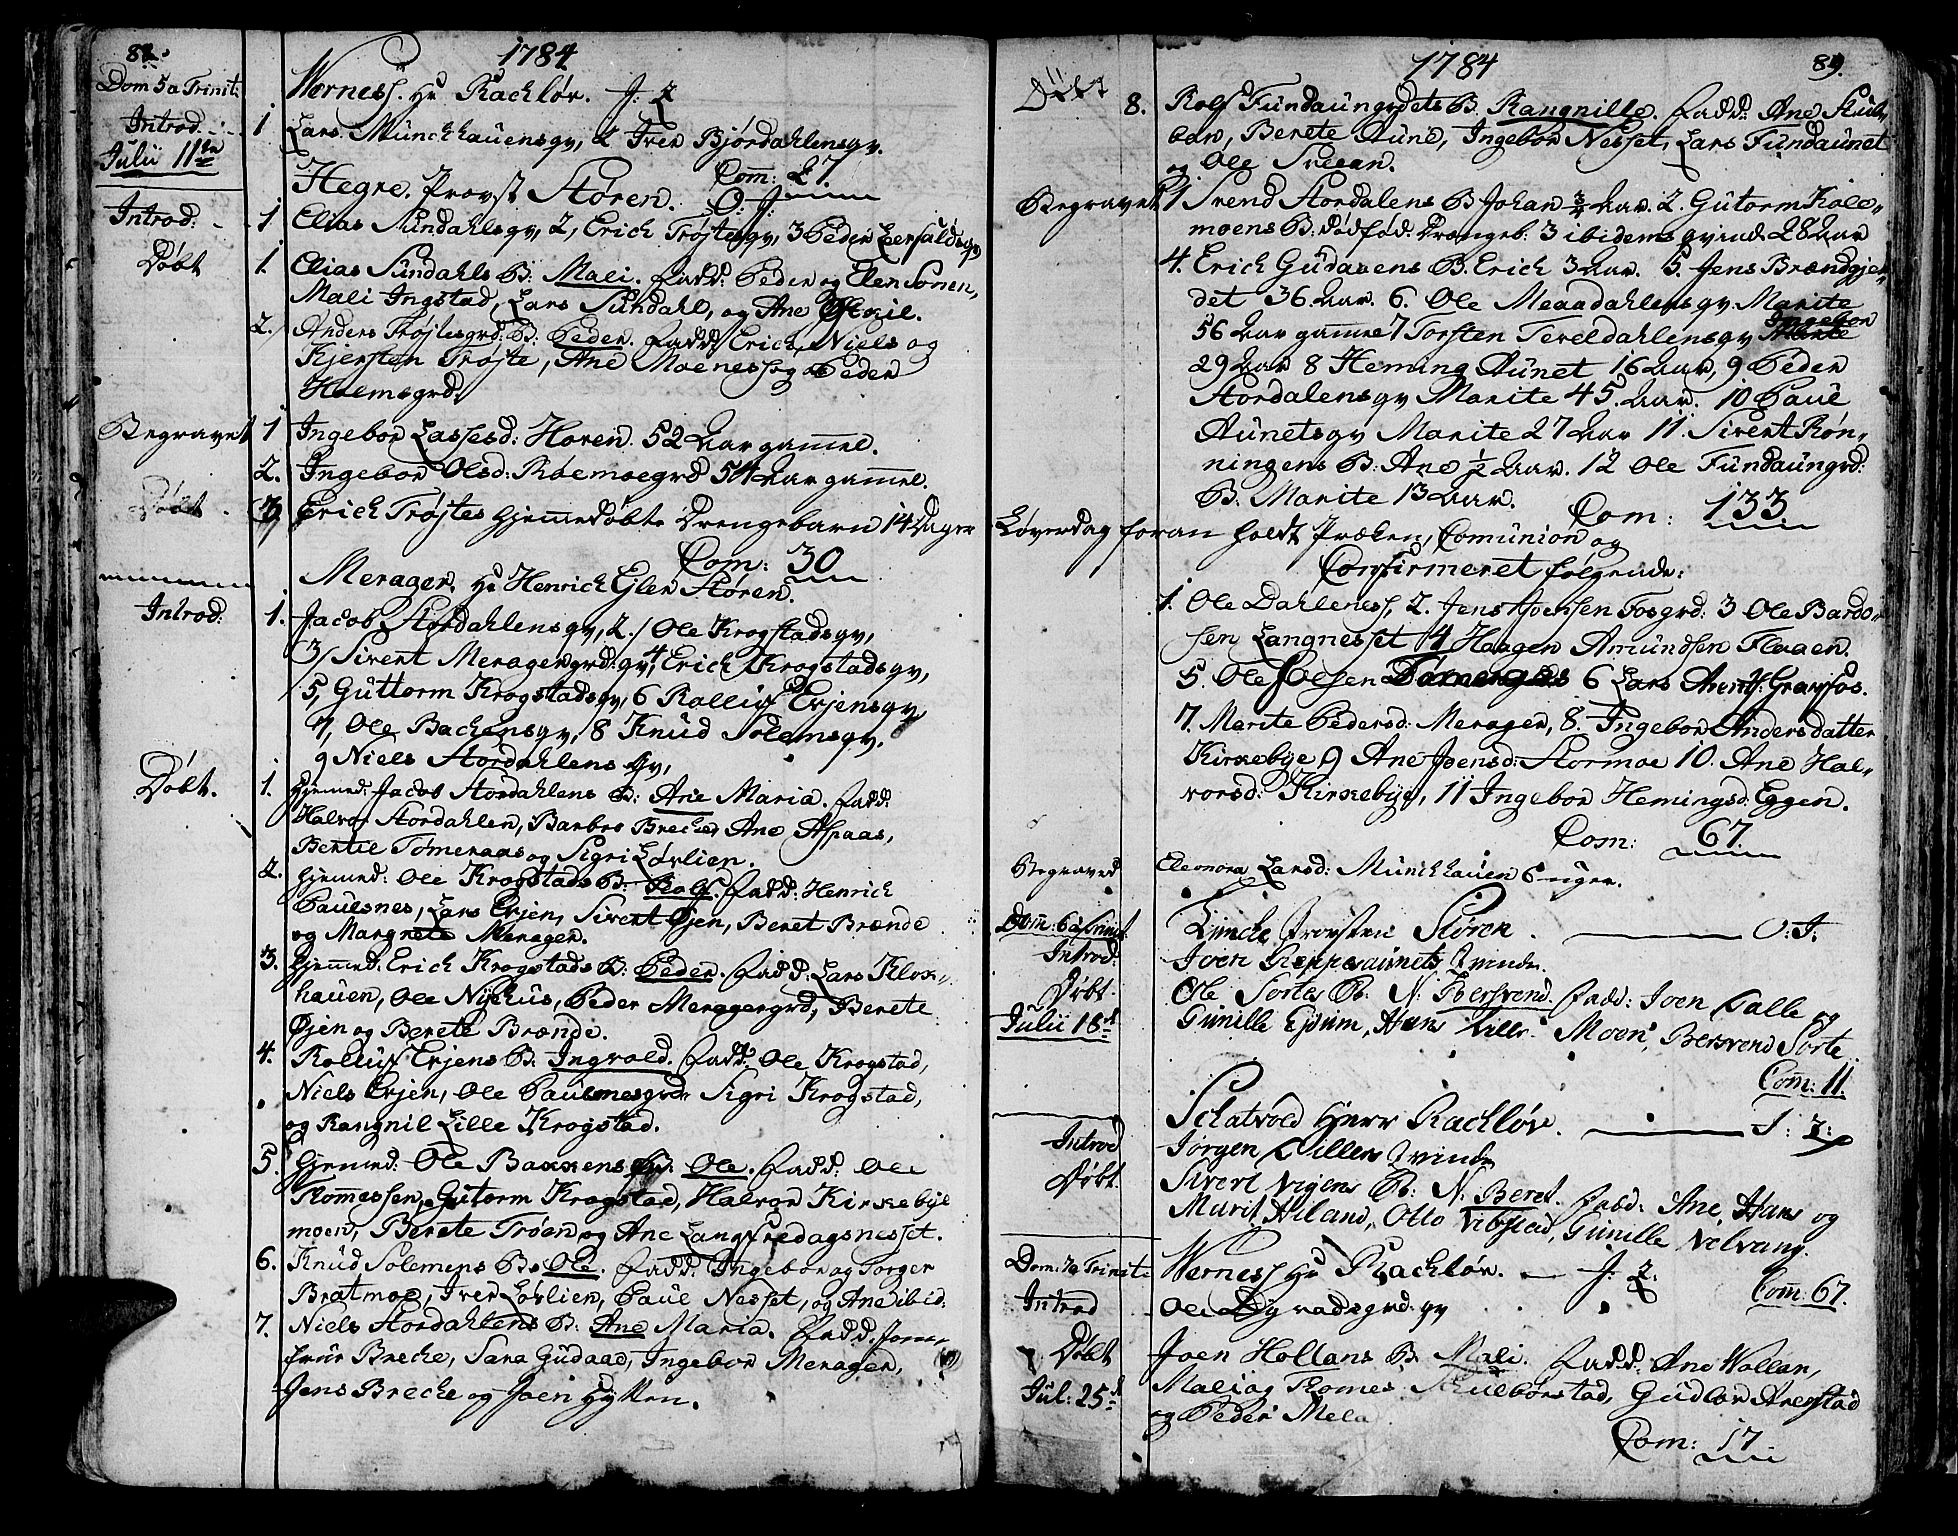 88.
1784
Dom 5 a Trinit:
Wernes. Hr Rachløv. J. 2
Introd:
1 Lars Munchhauensqv, 2 Iver Bjørdahlensqv.
Julii 11te
Com: 27
Hegre. Provst Støren. O. J.
Introd:
1 Elias Sundahlsqv, 2, Erich Trøjtesqv, 3 Peder Leerfaldsqv
Døbt
1. Elias Sundahls B. Mali. Fadd: Peder og Elen Sonen,
Mali Ingstad, Lars Sundahl, og Ane
2. Anders Trøjtesgrd: B: Peder. Fadd: Erich, Niels og
Kjersten Trøjte, Ane Moeness og Peder
Hoemsgrd.
Begravet
1 Ingebor Lassesd: Horen. 52 Aar gamel.
2. Ingebor Olsd: Róemoegrd 54 Aar gamel.
Døbt
3 Erich Trøjtes hjemmedøbte Drengebarn 14 Dager
Com: 30
Merager. Hr Henrich Ejler Støren.
Introd:
1. Jacob Stordahlensqv, 2. Ole Krogstadsqv,
3/ Sivert Meragergrd:qv, 4 Erich Krogstadsqv,
5, Guttorm Krogstadsqv, 6 Rolluf Evjensqv,
7, Ole Backensqv, 8 Knud Solemsqv,
9 Niels Stordahlens qv,
Døbt.
1. Hjemed: Jacob Stordahlens B: Ane Maria. Fadd:
Halvor Stordahlen, Barbro Breche, Ane Aspaas,
Bertil Tømeraas og Sigri Løvlien.
2. Hjemed: Ole Krogstads B: Rolf. Fadd: Henrich
Pauesnes, Lars Evjen, Sivert Øjen, Beret Brænde
og Margrete Merager.
3. Hjemed: Erich Krogstads B: Peder. Fadd: Lars Klox-
hauen, Ole Nyehus, Peder Meragergrd, Berete
Øjen og Berete Brænde.
4. Rolluf Evjens B. Ingvold. Fadd: Ole Krogstad,
Niels Evjen, Ole Paulsnesgrd Sigri Krogstad,
og Rangnil Lille Krogstad.
5. Hjemed: Ole Baxxens B: Ole. Fadd: Ole
Thomessen, Gutorm Krogstad, Halvor Kirkebye
moen, Berete Trøen og Ane Langfredagsnesset.
6. Knud Solemens B: Ole. Fadd: Ingebor og Torger
Bratmoe, Iver Løvlien, Paul Nesset, og Ane ibid:
7. Niels Stordahlens B: Ane Maria. Fadd: Jom-
frue Breche, Sara Gudaad, Ingebor Merager,
Jens Breche og Joen Hyllen.
1784
89.
Døbt
8. Rolf Fundaungrdets B. Rangnille. Fadd: Ane Stub-
ban, Berete Aune, Ingebor Nesset, Lars Fundaunet
og Ole Sveean.
Begravet
1 Svend Stordalens B Johan 3/4 Aar. 2. Gutorm Kold-
moens B: dødfød: Drengeb: 3 ibidems qvinde 28 Aar
4. Erich Gudaaens B. Erich 3 Aar. 5. Jens Brændgjer-
det 36 Aar. 6. Ole Meaadahlensqv: Marite
56 Aar gamel 7 Torsten Teveldahlensqv Ingebor
29 Aar 8 Heming Aunet 16 Aar, 9 Peder
Stordalensqv Marite 45. Aar. 10 Paul
Aunetsqv Marite 27 Aar 11. Sivert Røn-
ningens B: Ane 1/2 Aar. 12 Ole Fundaungrd:
B. Marite 13 Aar. Com: 133
Løverdag foran holdt Præken, Comunion og
Confirmeret følgende:
1. Ole Dahleness, 2. Jens Joensen Fosgrd: 3 Ole Bardo-
sen Langnesset 4 Haagen Amundsen Floaen.
5. Ole Joesen 6 Lars Arents: Gravfos.
7. Marite Pedersd: Merager, 8. Ingebor Andersdatter
Kirkebye 9 Ane Joensd: Stormoe 10. Ane Hal-
vorsd: Kirkebye, 11 Ingebor Hemingsd: Eggen.
Com: 67.
Begraved
Eleonora Larsd: Münchhauen 6 uger.
Dom: 6 a Trinit
Lyncke Provsten Støren. O: J:
Introd:
Joen Reppesaunets Qvinde.
Døbt.
Ole Sortes B: N: Bersvend. Fadd: Joen Salle og
Julii 18d
Gunille Ejdum, Hans Moen, Bersvend Sorte
Com: 11.
Schatvold Herr Rachløv. J: 2:
Introd
Jørgen Villes Qvinde
Døbt.
Sivert Vigens B: N: Beret. Fadd: Ane, Hans og
Marit Hiland, Otto Vibstad, Gunille Velvang.
Dom: 7 a Trinit
Werness Hr Rachløv. J. 2. Com: 67.
Introd
Ole Dyvadsgrd: qv
Døbt
Joen Hollans B. Mali. Fadd: Ane Wollan,
Jul: 25d
Mali og Thomes Gudlov Arenstad
og Peder Mela
Com: 17.